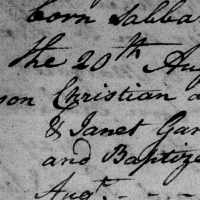 born Sabba
the 20th Au
son Christian a
& Janet Gar
and Baptize
Augt.